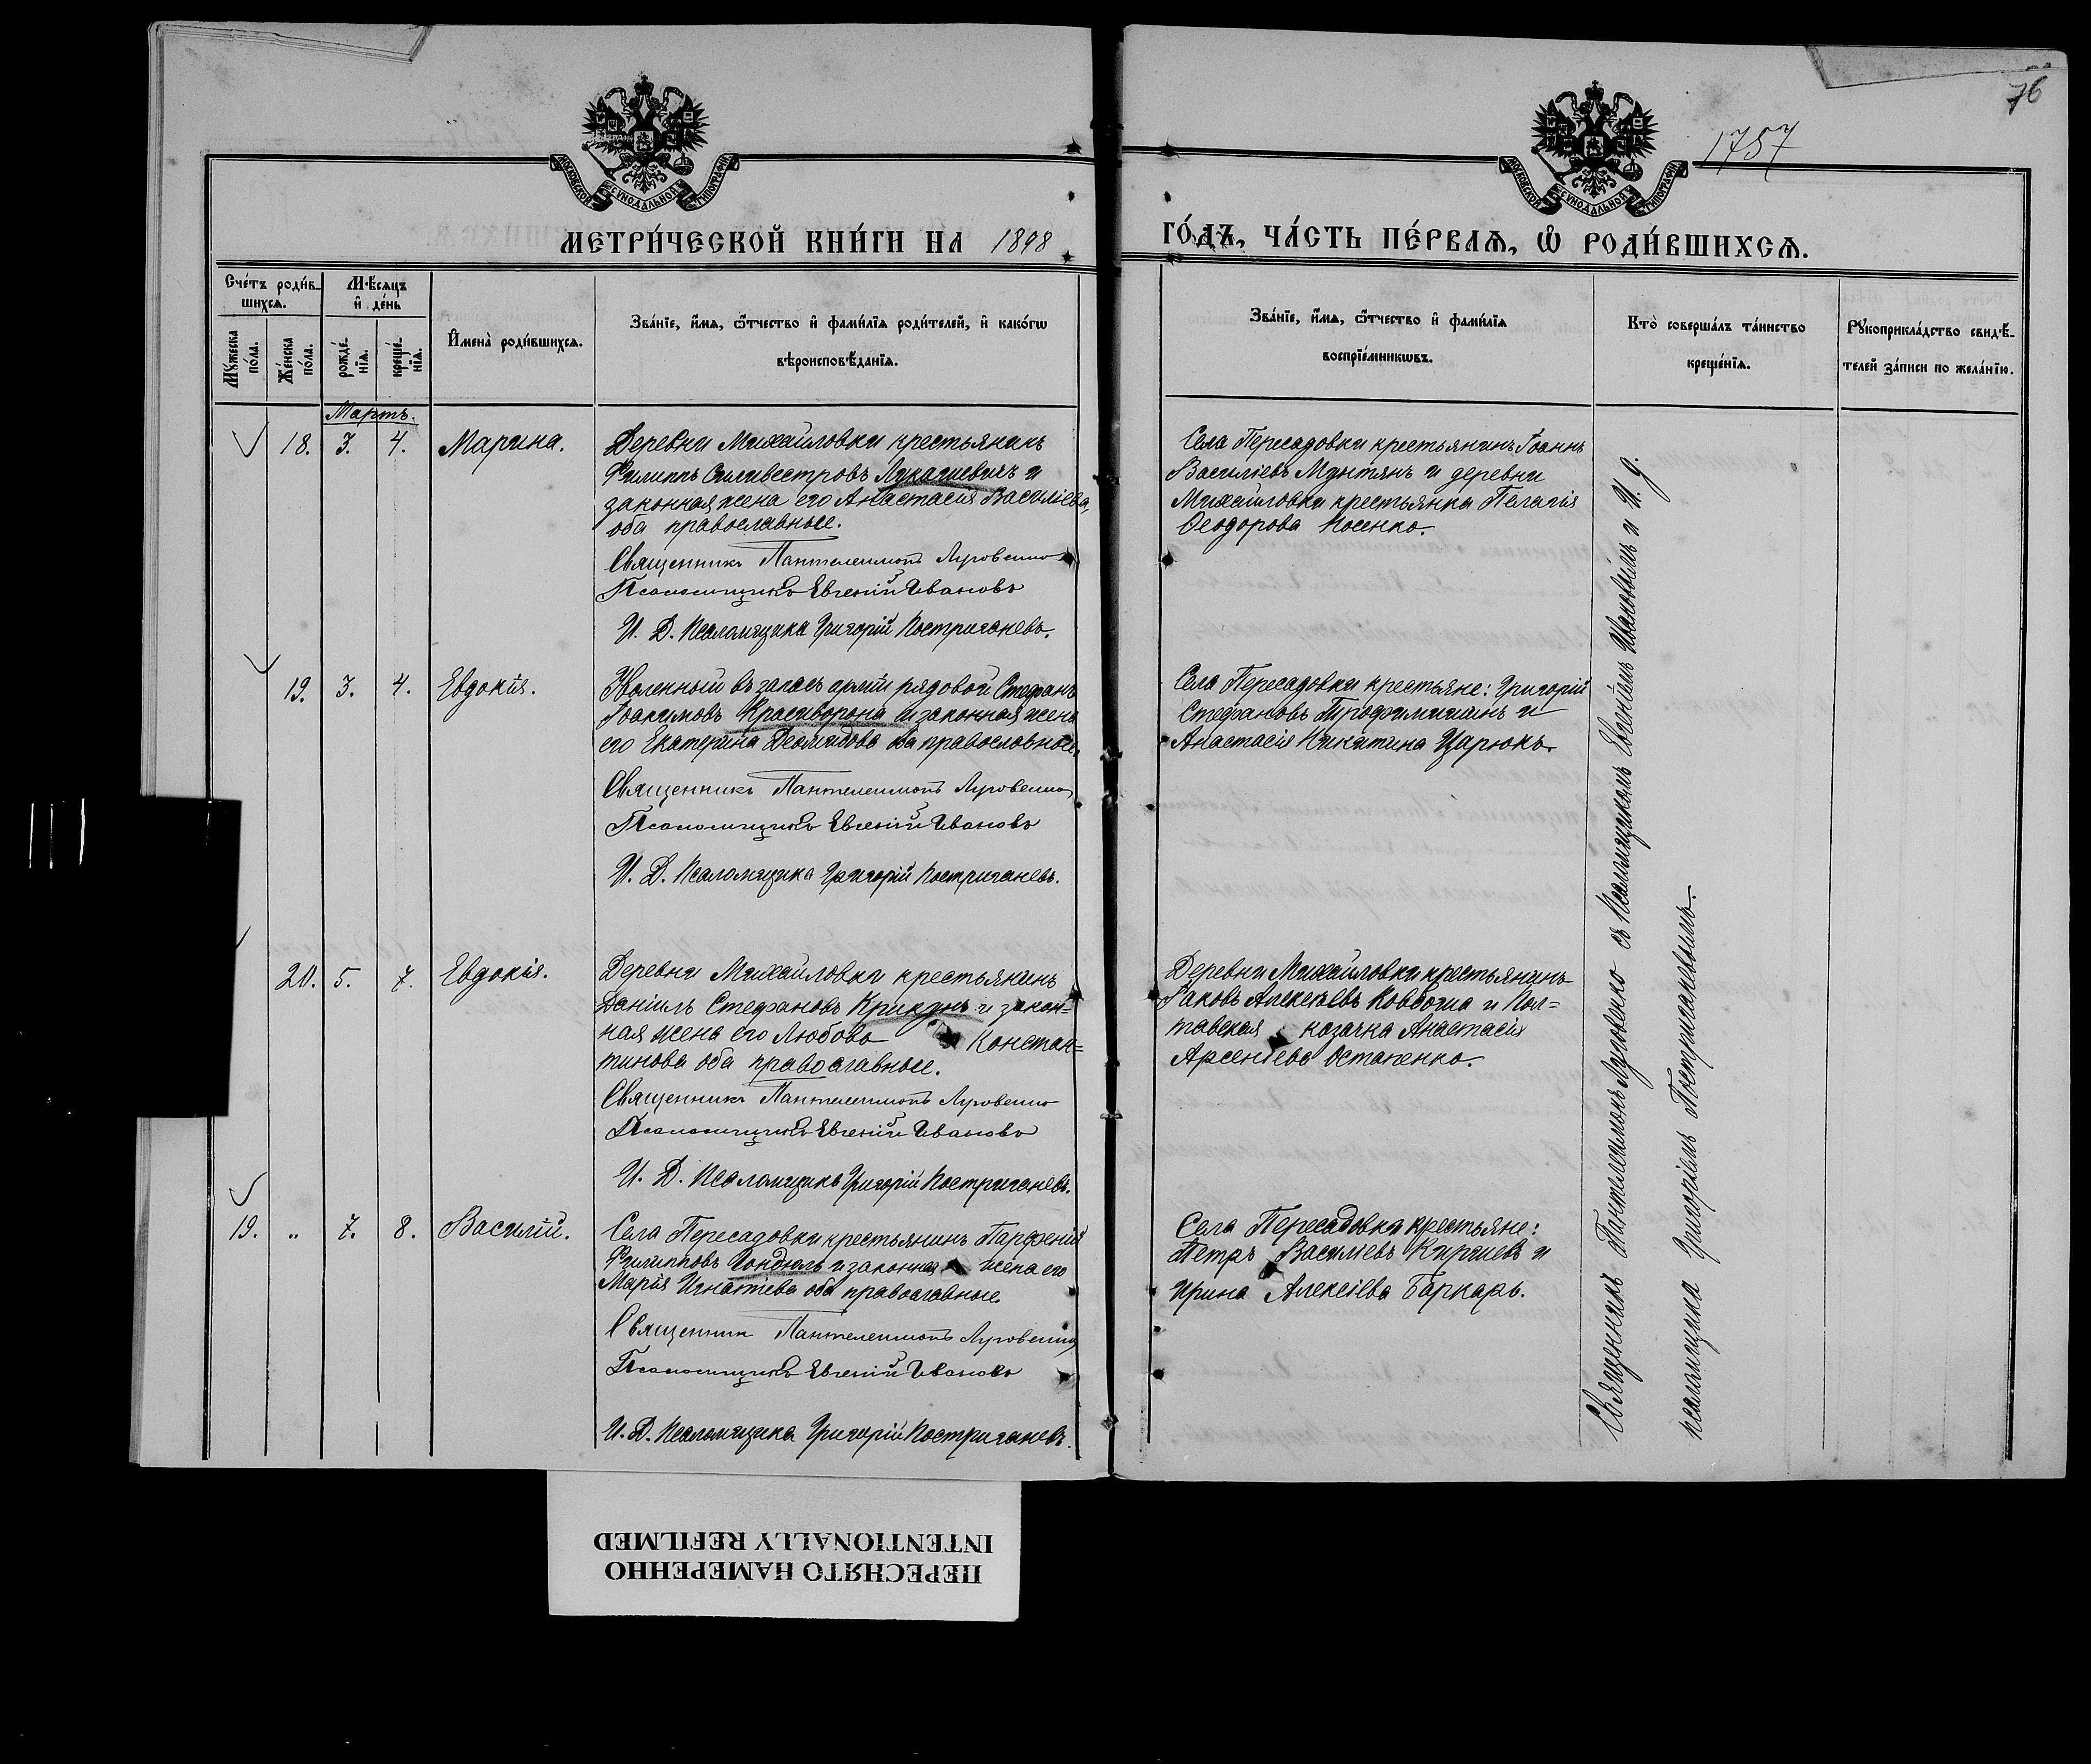 76
1757
МОСКОВСКОЙ СѴНОДАЛЬНОЙ ТИПОГРАФІИ
МОСКОВСКОЙ СѴНОДАЛЬНОЙ ТИПОГРАФІИ
МЕТРИ́ЧЕСКОЙ КНИ́ГИ НА 1898
ГО́ДЪ, ЧА́СТЬ ПЕ́РВАѦ, Ѡ҆ РОДИ́ВШИХСѦ.
Сче́тъ роди́в-
шихсѧ.
Мѣ́сѧцъ
и҆ де́нь
Мꙋ́жеска
по́ла.
Же́нска
по́ла.
рожде́-
нїѧ.
креще́-
нїѧ.
И҆мена̀ роди́вшихсѧ.
Зва́нїе, и҆́мѧ, ѻ҆́тчество и҆ фами́лїѧ роди́телей, и҆ како́гѡ
вѣроисповѣ́данїѧ.
Зва́нїе, и҆́мѧ, ѻ҆́тчество и҆ фами́лїѧ
воспрїе́мникѡвъ.
Кто̀ соверша́лъ та́инство
креще́нїѧ.
Рꙋкоприкла́дство свидѣ́-
телей за́писи по жела́нїю.
Мартъ.
18. 3. 4. Марина.
Деревни Михайловки крестьянинъ
Филиппъ Сильвестровъ Лукашевичъ и
законная жена его Анастасія Василіева,
оба православные.
Священникъ Пантелеимонъ Луговенко
Псаломщикъ Евгеній Ивановъ
И. Д. Псаломщика Григорій Постригачевъ.
Села Пересадовки крестьянинъ Іоаннъ
Василіевъ Мунтянъ и деревни
Михайловки крестьянка Пелагія
Ѳеодорова Носенко.
19. 3. 4. Евдокія.
Уволенный въ запасъ арміи рядовой Стефанъ
Іоакимовъ Красиворона и законная жена
его Екатерина Деомидова оба православные.
Священникъ Пантелеимонъ Луговенко
Псаломщикъ Евгеній Ивановъ
И. Д. Псаломщика Григорій Постригачевъ.
Села Пересадовки крестьяне: Григорій
Стефановъ Трофимишинъ и
Анастасія Никитина Царюкъ.
20. 5. 7. Евдокія.
Деревни Михайловки крестьянинъ
Даніилъ Стефановъ Крикунъ и закон=
ная жена его Любовь Констан=
тинова оба православные.
Священникъ Пантелеимонъ Луговенко
Псаломщикъ Евгеній Ивановъ
И. Д. Псаломщика Григорій Постригачевъ.
Деревни Михайловки крестьянинъ
Іаковъ Алексіевъ Ковбаша и Пол=
тавская козачка Анастасія
Арсеніева Остапенко.
19. " 7. 8. Василій.
Села Пересадовки крестьянинъ Парфеній
Филипповъ Гондюль и законная жена его
Марія Игнатіева оба православные.
Священник Пантелеимонъ Луговенко
Псаломщикъ Евгеній Ивановъ
И. Д. Псаломщика Григорій Постригачевъ.
Села Пересадовки крестьяне:
Петръ Василіевъ Киріиевъ и
Ирина Алексіева Баркарь.
Священникъ Пантелеимонъ Луговенко съ Псаломщикомъ Евгеніемъ Ивановымъ и И. д.
псаломщика Григоріемъ Постригачевымъ.
ПЕРЕСНЯТО НАМЕРЕННО
INTENTIONALLY REFILMED